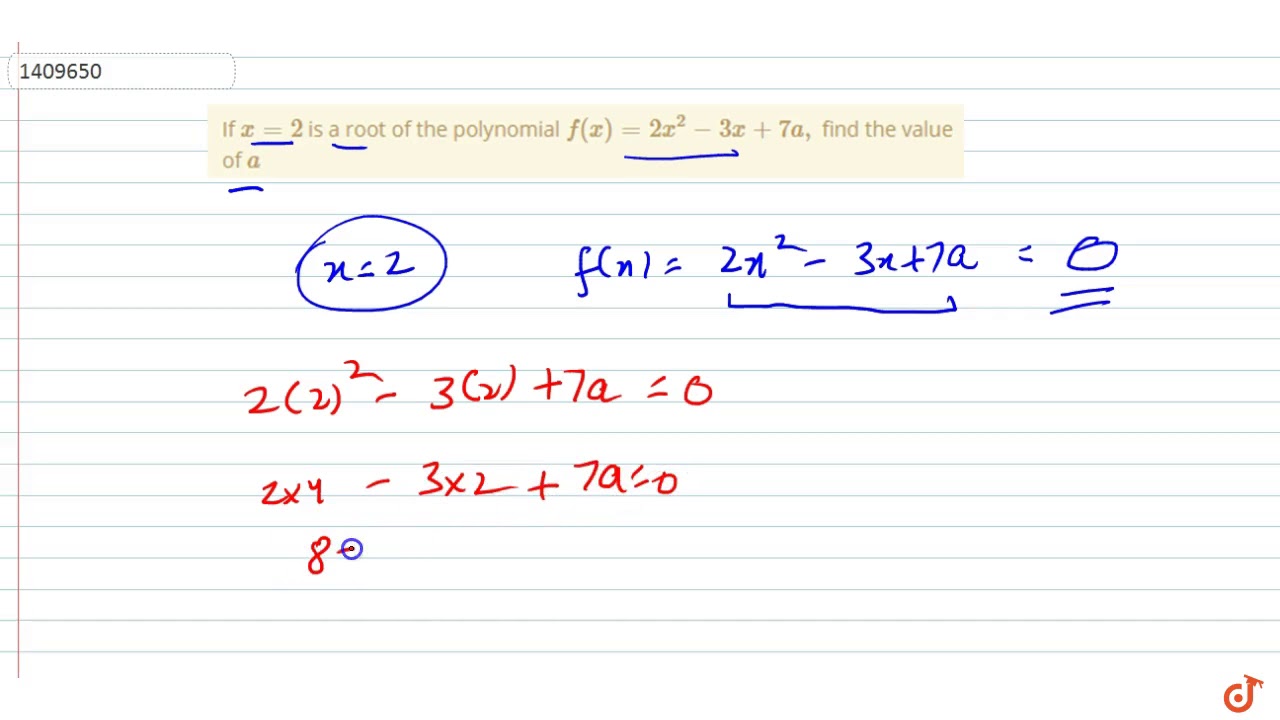 1409650
If x = 2 is a root of the polynomial f(x) = 2x² − 3x + 7a, find the value
of a
x = 2 f(x) = 2x² − 3x + 7a = 0
2(2)² − 3(2) + 7a = 0
2×4 − 3×2 + 7a = 0
8 −